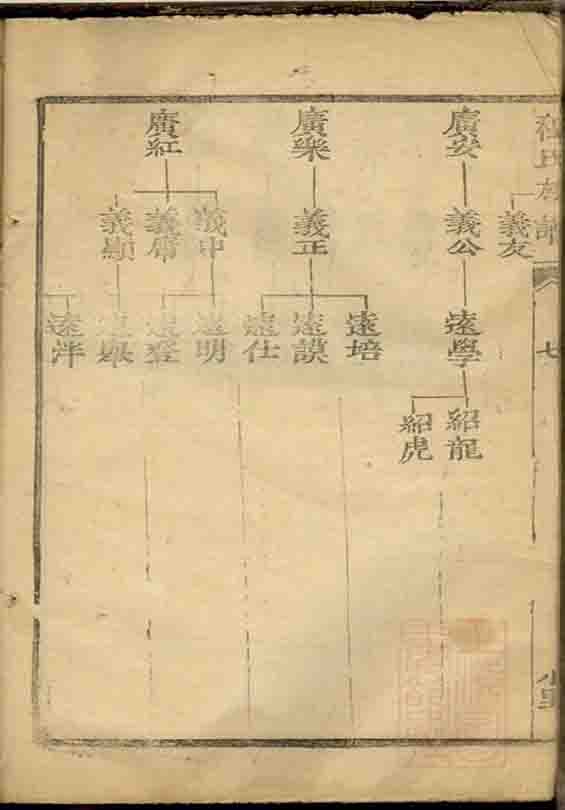 氏族譜
七
義友
廣安
義公
遠學
紹龍
紹虎
廣樂
義正
遠培
遠謨
遠仕
廣紅
義中
義庸
義顯
遠明
遠登
遠泮